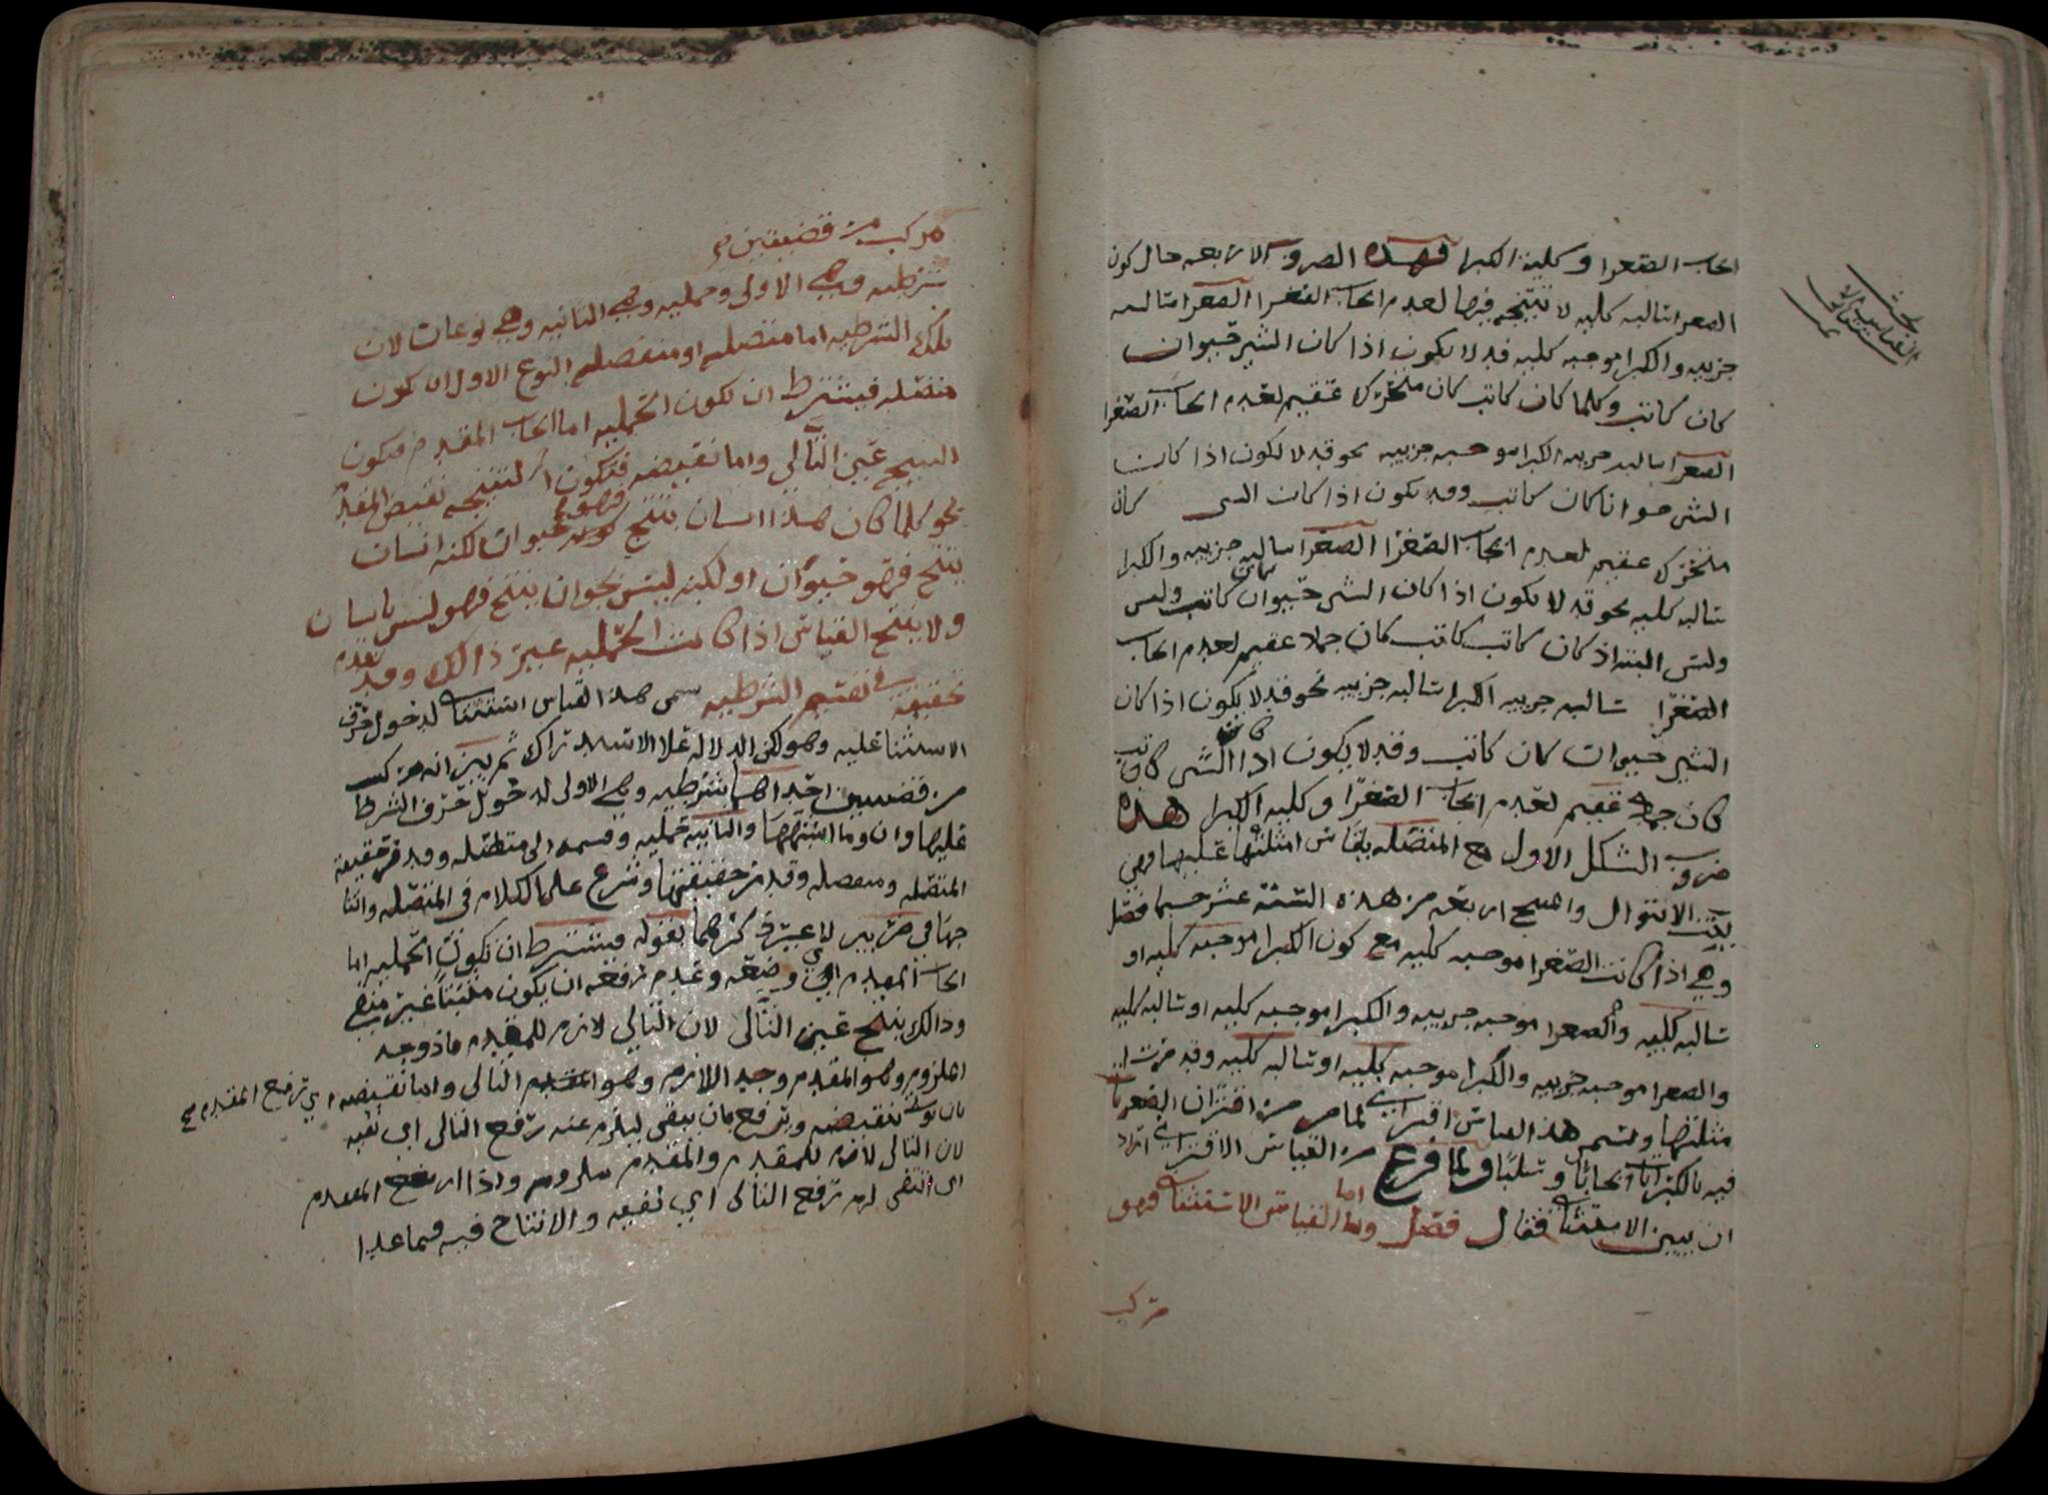 ايجاب الصغرا وكلية الكبرا فهذه الصروب الاربعه حال كون
الصعرا سالبه كليه لا نتيجه فيها لعدم ايجاب الصغرا الصعرا سالبه
جزييه والكبرا موجبه كليه قد لا يكون اذا كان الشي حيوان
كان كاتب وكلما كان كاتب كان متحرك عقيم لعدم ايجاب الصغرا
الصعرا سالبه جزييه الكبرا موجبه جزييه نحو قد لا يكون اذا كان
الشي حيوانا كان كاتب وقد يكون اذا كان الشي كان
متحرك عقيم لعدم ايجاب الصغرا الصغرا سالبه جزييه والكبرا
سالبه كليه نحو قد لا يكون اذا كان الشي حيوان كان كاتب وليس
وليس البته اذ كان كاتب كاتب كان جملا عقيم لعدم ايجاب
الصغرا سالبه جزييه الكبرا سالبه جزييه نحو قد لا يكون اذا كان
الشي حيوان كان كاتب وقد لا يكون اذا كان الشي كاتب
كان جملا عقيم لعدم ايجاب الصغرا وكليه الكبرا هذه
ضروب الشكل الاول مع المتصله يقاس امثلتها عليها فهي
بهذا المنوال والمنتج اربعه من هذه الستة عشر حسبما فصل
وهي اذا كانت الصغرا موجبه كليه مع كون الكبرا موجبه كليه او
سالبه كليه والصعرا موجبه جزييه والكبرا موجبه كليه او سالبه كليه
والصعرا موجبه جزييه والكبرا موجبه كليه او سالبه كليه وقد مرت ا
مثلتها ويسمى هذا القياس اقتراني لما مر من اقتران الصغريات
فيه بالكبرايات ايجابا وسلبا ولما فرغ من القياس الاقتراني اراد
ان يبين الاستثنا فقال فصل واما القياس الاستثناي فهو
مركب
بحث
القياس الاستثناي
مركب من قضيتين
شرطيه وهي الاولى وحمليه وهي الثانيه وهي نوعان لان
تلك الشرطيه اما متصله او منفصله النوع الاول ان تكون
متصله فيشترط ان تكون الحمليه اما ايجاب المقدم فتكون
النتيجه عين التالي واما نقيضه فتكون النتيجه نقيض المقدم
نحو كلما كان هذا انسان ينتج كونه فهو حيوان لكنه انسان
ينتج فهو حيوان او لكنه ليس بحيوان ينتج فهو ليس بانسان
ولا ينتج القياس اذا كانت الحمليه غير ذالك وقد تقدم
تحقيقه في تقسيم الشرطيه سمى هذا القياس استثناي لدخول حرف
الاستثنا عليه وهو لكن الدلاله علا الاستدراك ثم يبين انه مركب
من قضيتين احداهما شرطيه وهي الاولى لدخول حرف الشرط
عليها وان وما اشبههما والثانيه حمليه وقسمه الى متصله وقد مر حقيقه
المتصله ومنفصله وقد مر حقيقتها وشرع على الكلام في المتصله وانتا
جها في ضربين لا غير ذكرهما بقوله فيشترط ان تكون الحمليه اما
ايجاب المقدم اي وضعه وعدم رفعه ان يكون مثبتا غير منفي
وذالك ينتج عين التالى لان التالي لازم للمقدم فاذ وجد
الملزوم وهو المقدم وجد اللازم وهو المقدم التالى واما نقيضه اي رفع المقدم صح
بان نوله بنقيضه ويرفع بان ينفى ليلزم عنه رفع التالى اي نفيه
لان التالى لازم للمقدم والمقدم ملزوم واذا ارتفع المقدم
اى انتفى لزم رفع التالى اي نفيه والانتاج فيه فيما عدا